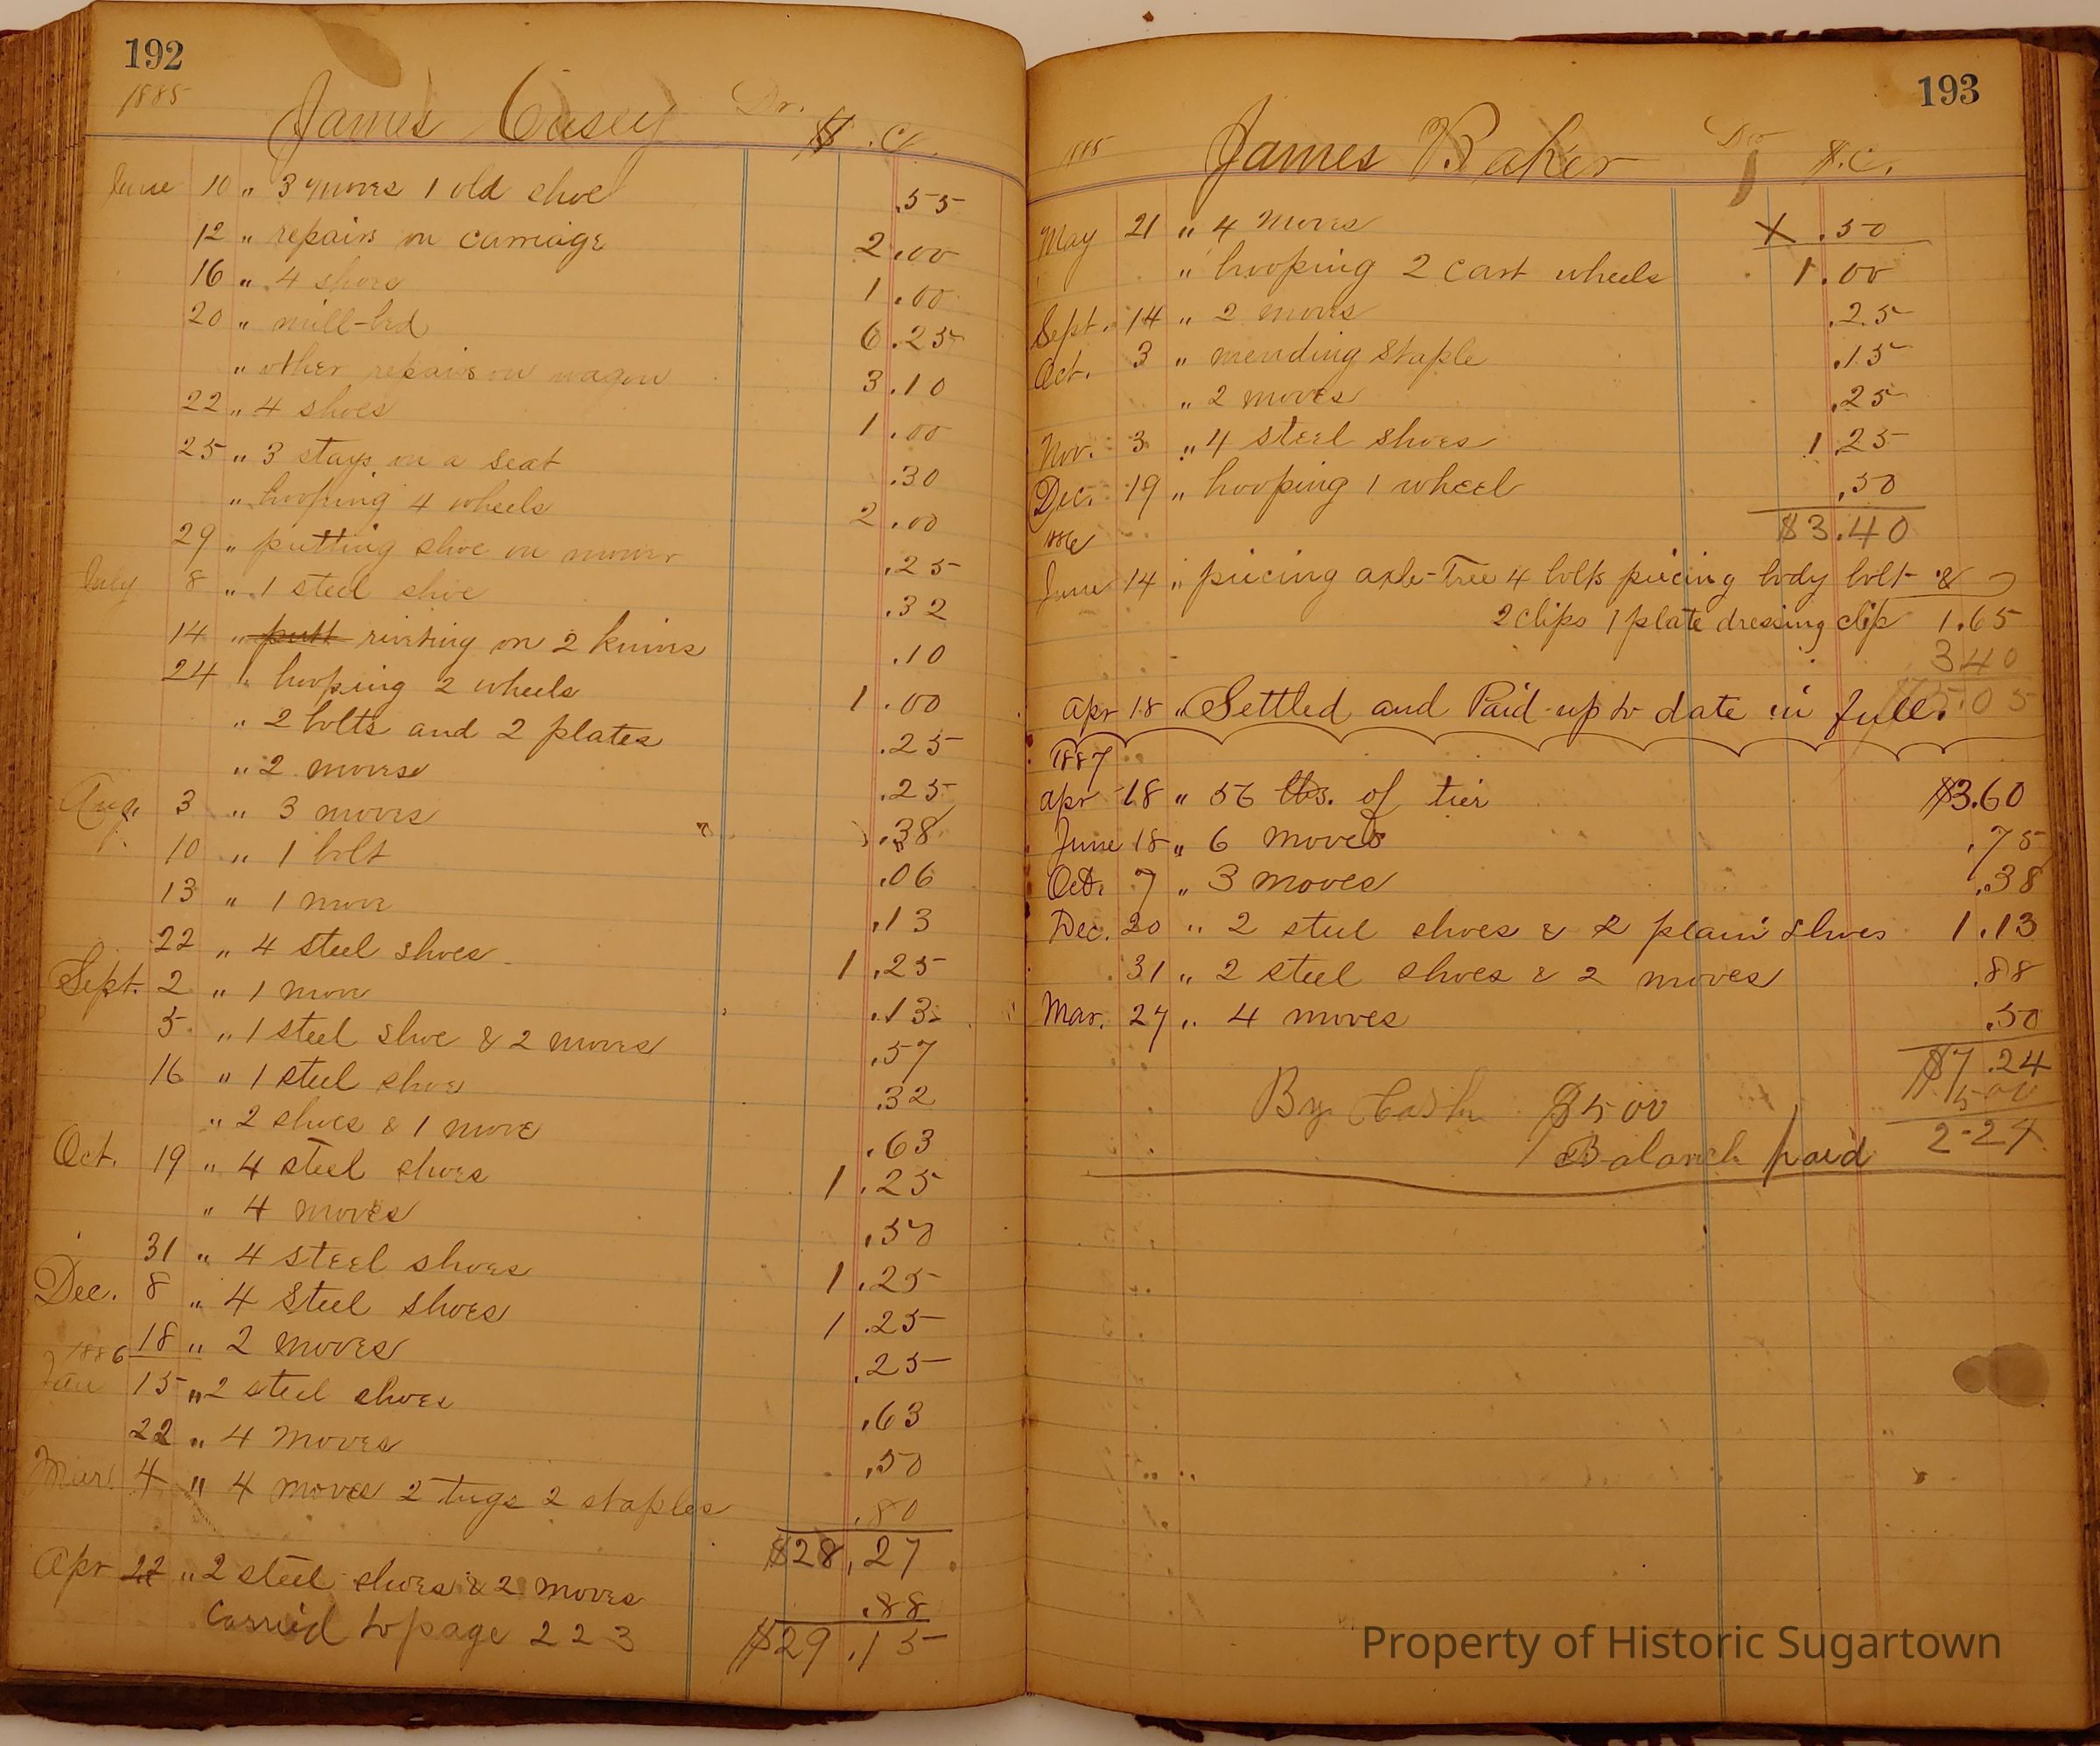 192
1885 James Casey Dr. $ .C.
June 10 " 3 moves 1 old shoe .55
12 " repairs on carriage 2.00
16 " 4 shoes 1.00
20 " mill-bed 6.25
" other repairs on wagon 3.10
22 " 4 shoes 1.00
25 " 3 stays on a seat .30
" hooping 4 wheels 2.00
29 " putting shoe on mower .25
July 8 " 1 steel shoe .32
14 " putt riveting on 2 knives .10
24 " hooping 2 wheels 1.00
" 2 bolts and 2 plates .25
" 2 moves .25
Aug. 3 " 3 moves .38
10 " 1 bolt .06
13 " 1 move .13
22 " 4 steel shoes 1.25
Sept. 2 " 1 move .13
5 " 1 steel shoe & 2 moves .57
16 " 1 steel shoe .32
" 2 shoes & 1 move .63
Oct. 19 " 4 steel shoes 1.25
" 4 moves .50
31 " 4 steel shoes 1.25
Dec. 8 " 4 steel shoes 1.25
18 " 2 moves .25
1886
Jan 15 " 2 steel shoes .63
22 " 4 moves .50
Mar. 4 " 4 moves 2 tugs 2 staples .80
$28.27
Apr 22 " 2 steel shoes & 2 moves .88
Carried to page 223 $29.15
193
1885 James Baker Dr $.C.
May 21 " 4 moves X .50
" hooping 2 cart wheels 1.00
Sept. 14 " 2 moves .25
Oct. 3 " mending staple .15
" 2 moves .25
Nov. 3 " 4 steel shoes 1.25
Dec. 19 " hooping 1 wheel .50
1886 $3.40
June 14 " piecing axle-tree 4 bolts piecing body bolt &
2 clips 1 plate dressing clip 1.65
3 40
5.05
Apr 18 " Settled and Paid up to date in full.
1887
Apr 18 " 56 lbs. of tier $3.60
June 18 " 6 moves .75
Oct. 7 " 3 moves .38
Dec. 20 " 2 steel shoes & 2 plain shoes 1.13
31 " 2 steel shoes & 2 moves .88
Mar. 27 " 4 moves .50
$7.24
By Cash $5 00 5.00
Balance paid 2-24
Property of Historic Sugartown